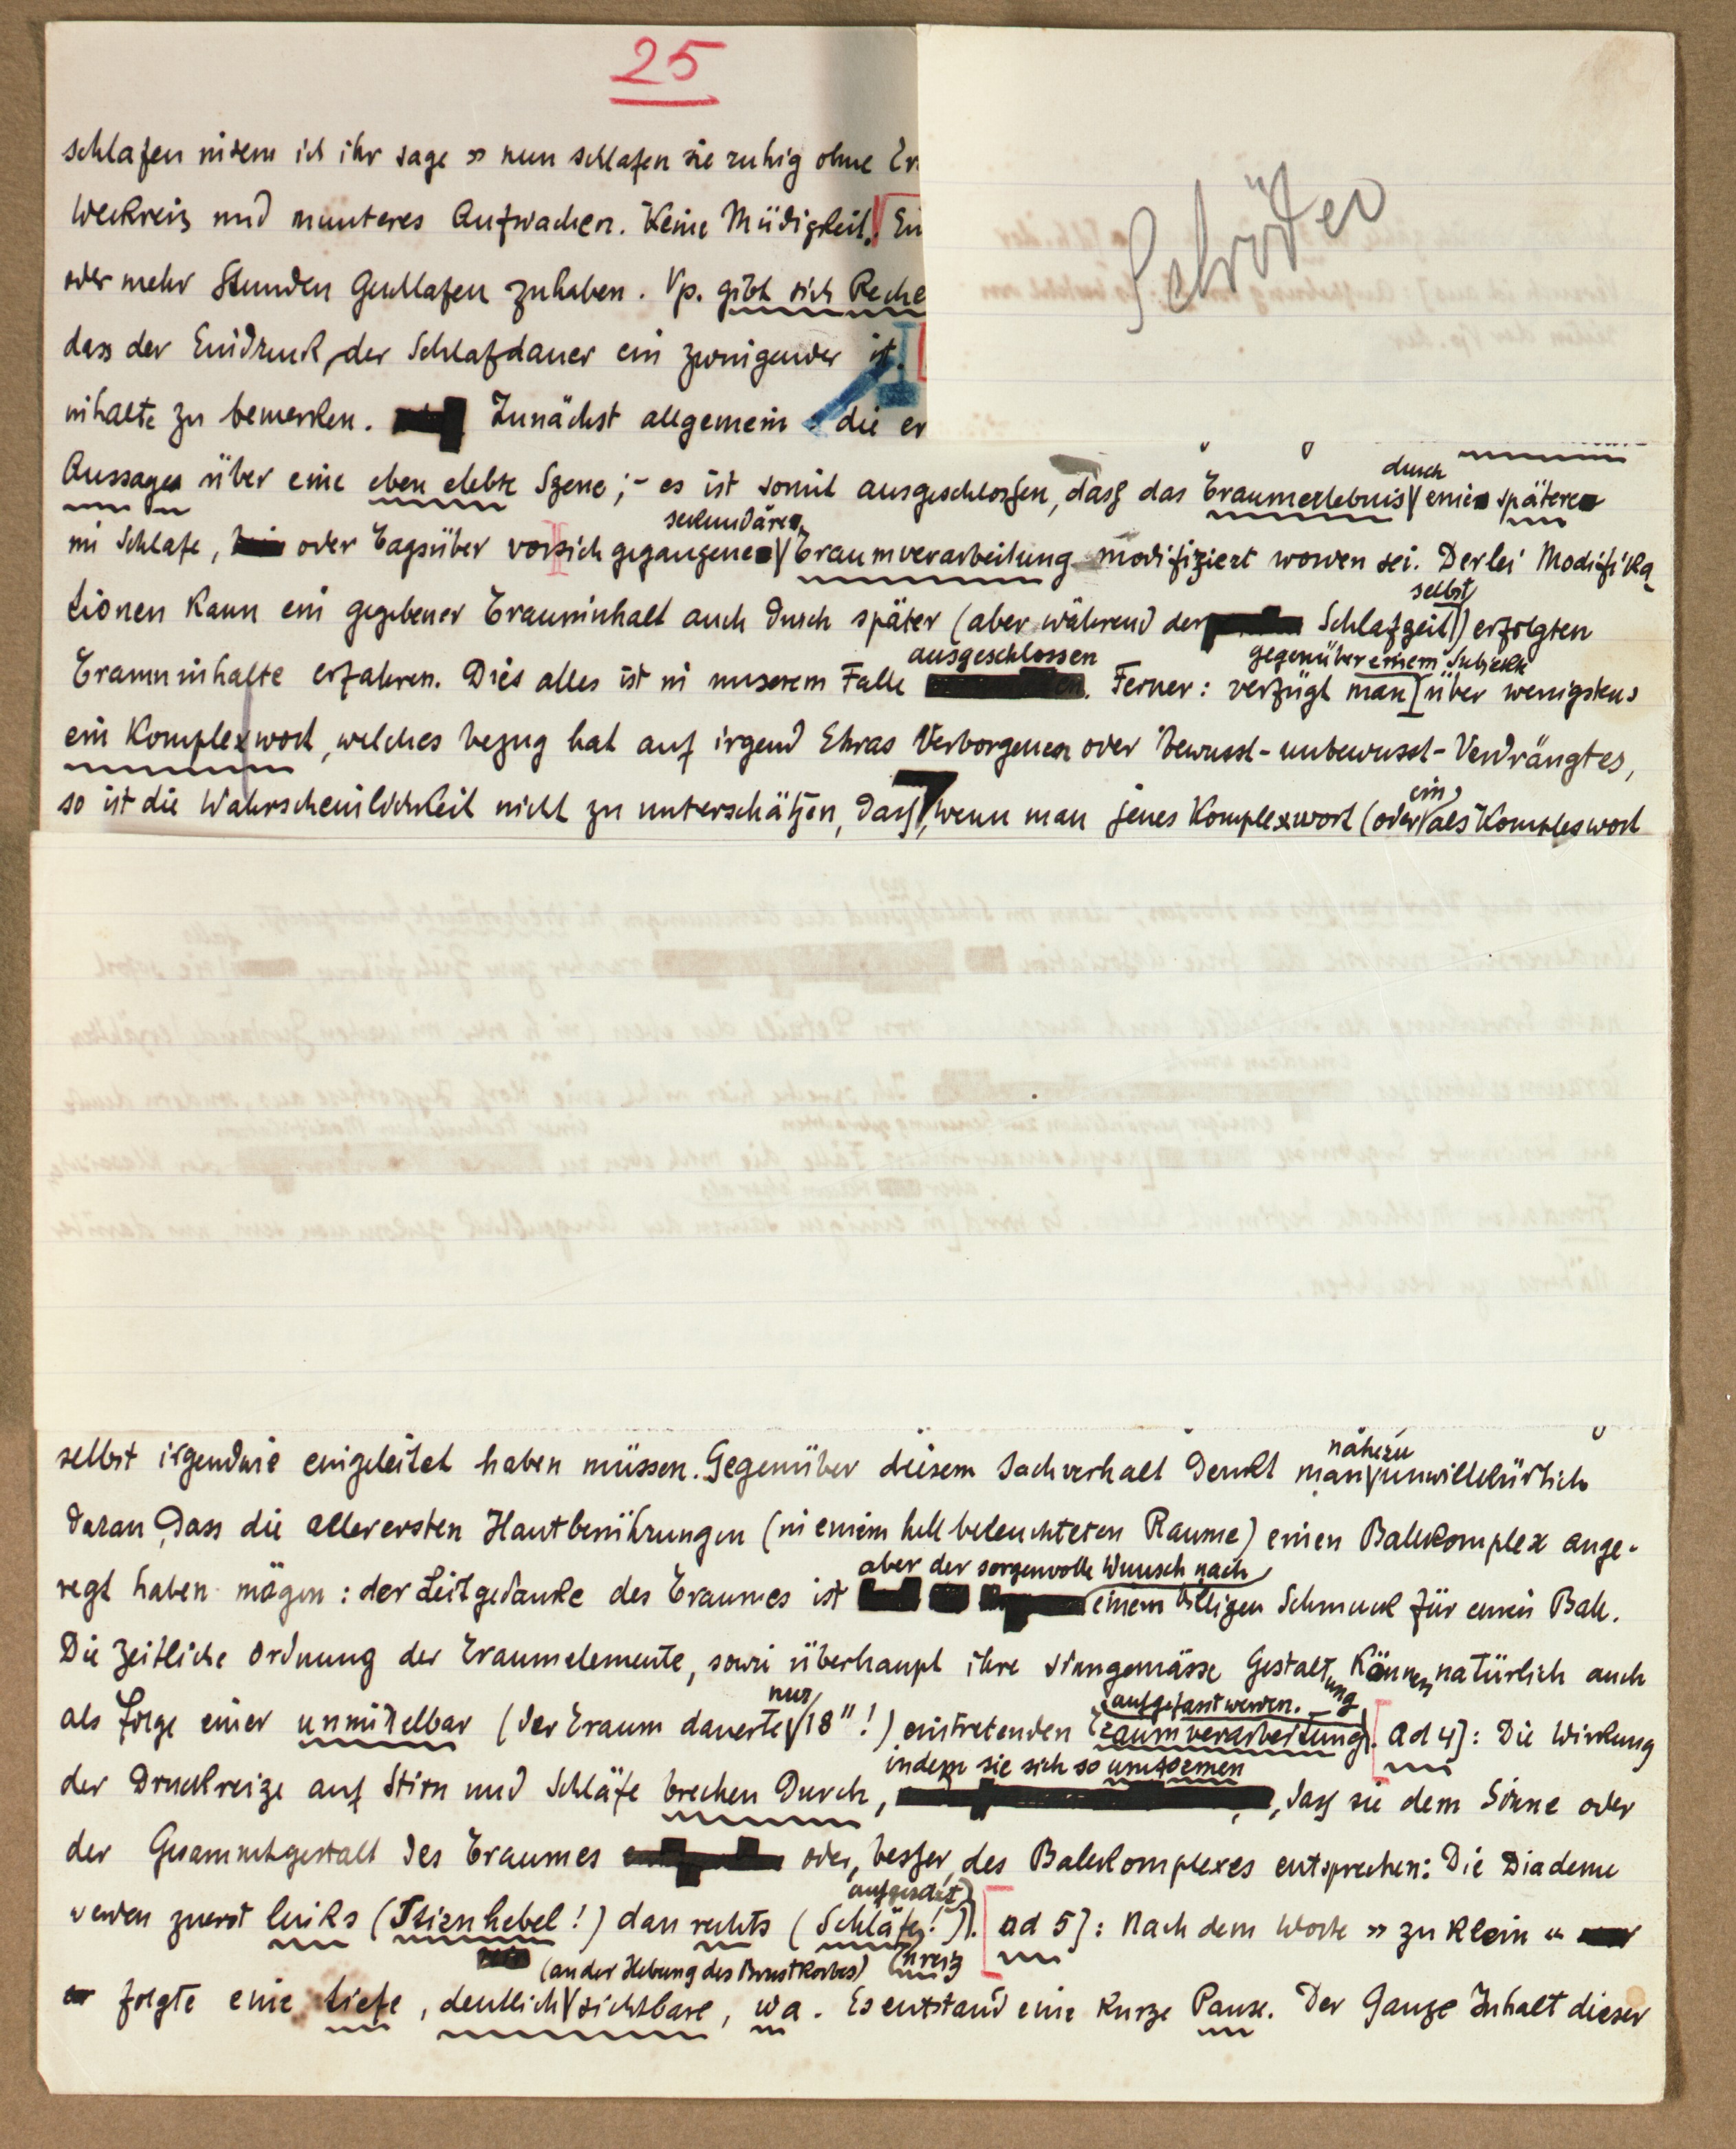 25
schlafen indem ich ihr sage » nun schlafen sie ruhig ohne
Weckreiz und munteres Aufwachen. Keine Müdigkeit.
oder mehr Stunden geschlafen zuhaben. Vp. gibt sich
dass der Eindruck der Schlafdauer ein zwingender ist.
inhalte zu bemerken. Zunächst allgemein : die
Schröder
durch
Aussagen über eine eben elebte Szene; - es ist somit ausgeschlossen, dass das Traumerlebnis eine spätere
sekundäre
im Schlafe, oder Tagsüber vorsichgegangene Traumverarbeitung modifiziert worden sei. Derlei Modifika-
selbst
tionen kann ein gegebener Trauminhalt auch durch später (aber während der Schlafzeit) erfolgten
ausgeschlossen gegenüber einem Subjekte
Trauminhalte erfahren. Dies alles ist in unserem Falle . Ferner: verfügt man über wenigstens
ein Komplexwort, welches bezug hat auf irgend Etwas Verborgenes oder bewusst-unbewusst-Verdrängtes,
ein
so ist die Wahrscheinlichkeit nicht zu unterschätzen, dass, wenn man jenes Komplexwort (oder als Komplexwort
nahezu
selbst irgendwie eingeleitet haben müssen. Gegenüber diesem Sachverhalt denkt man unwillkürlich
daran, dass die allerersten Hautberührungen (in einem hell beleuchteten Raume) einen Ballkomplex ange-
aber der sorgenvolle Wunsch nach
regt haben mögen: der Leitgedanke des Traumes ist einem billigen Schmuck für einen Ball.
Die zeitliche Ordnung der Traumelemente, sowie überhaupt ihre sinngemässe Gestaltung können natürlich auch
nur aufgefasst werden.
als Folge einer unmittelbar (der Traum dauerte 18"!) eintretenden Traumverarbeitung. ad 4]: Die Wirkung
indem sie sich so umformen
der Druckreize auf Stirn und Schläfe brechen durch, , dass sie dem Sinne oder
der Gesammtgestalt des Traumes oder, besser, des Ballkomplexes entsprechen: Die Diademe
aufgesetzt)
werden zuerst links (Stirnhebel!) dan rechts (Schläfen!). ad 5]: Nach dem Worte » zu klein «
(an der Hebung des Brustkorbes) reiz
folgte eine tiefe, deutlich sichtbare, . Es entstand eine kurze Pause. Der Ganze Inhalt dieser